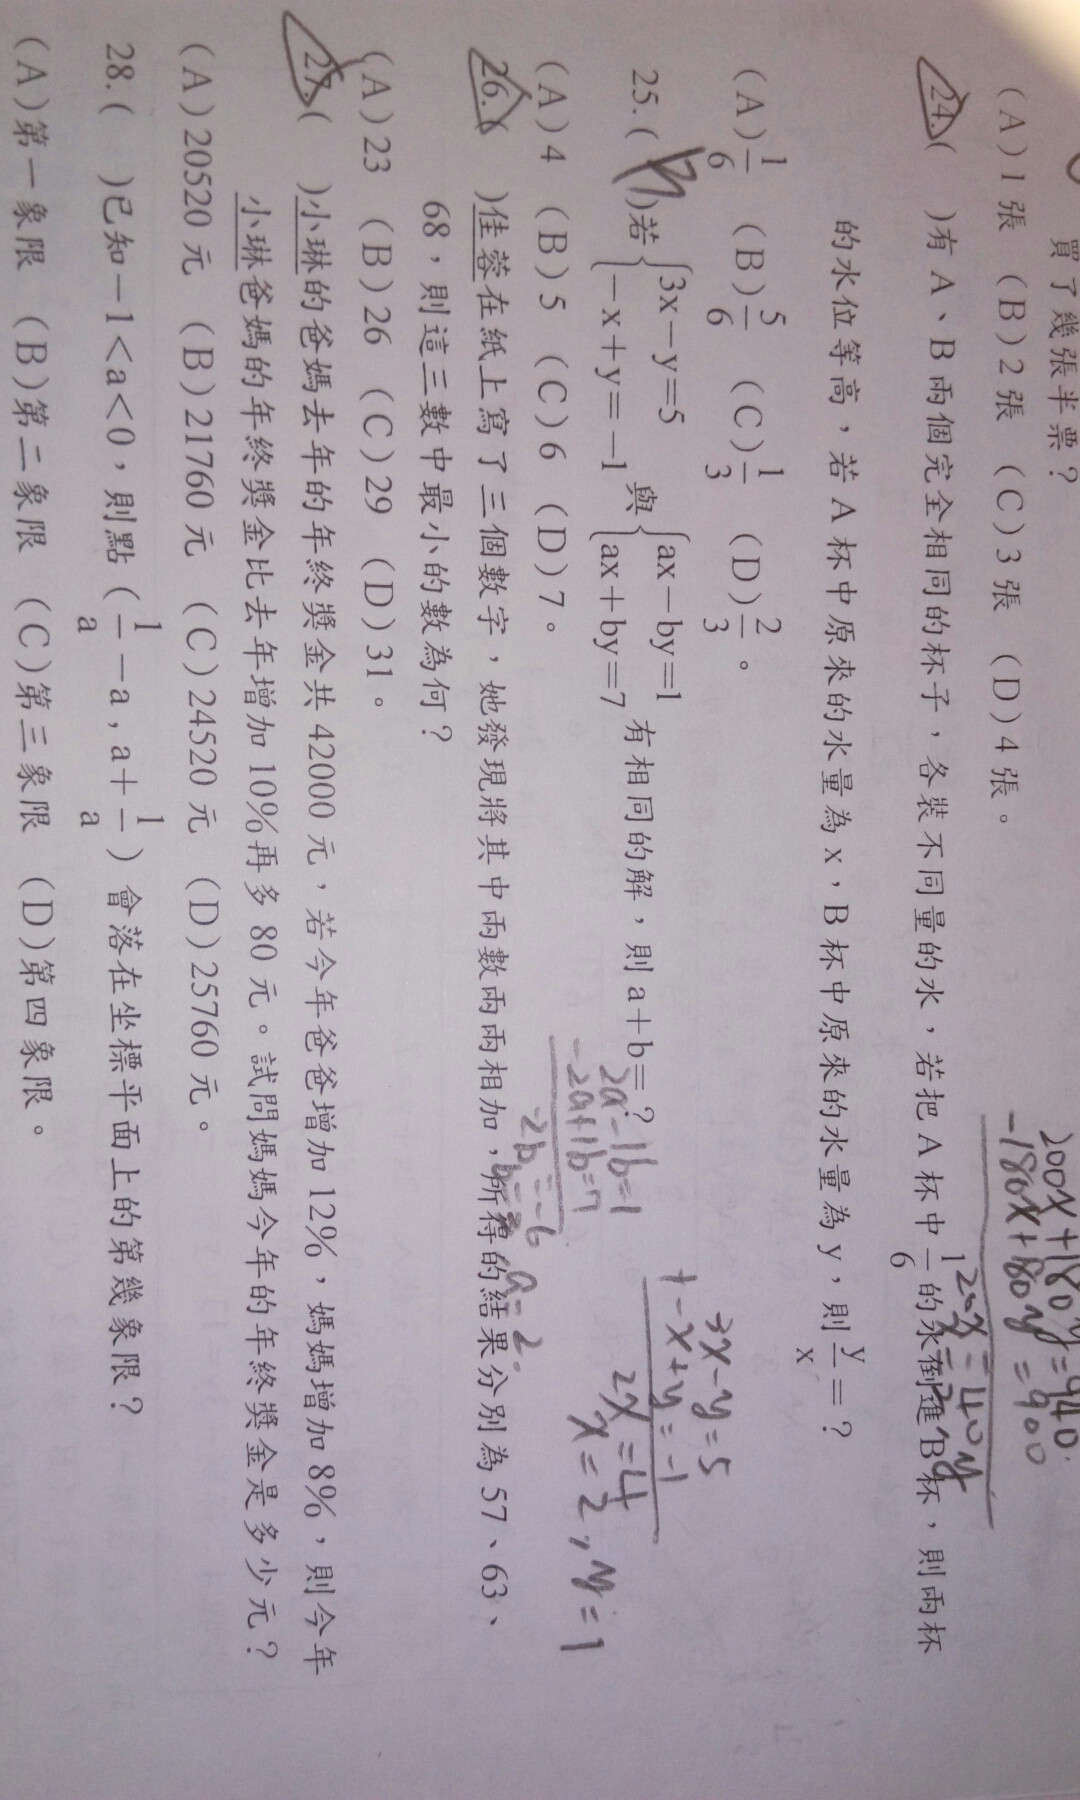 買了幾張半票？
(A)1張 (B)2張 (C)3張 (D)4張。
200x+180y=940
-180x+80y=900
20x=40y
24.( )有A、B兩個完全相同的杯子，各裝不同量的水，若把A杯中1/6的水倒進B杯，則兩杯
的水位等高，若A杯中原來的水量為x，B杯中原來的水量為y，則y/x=？
(A)1/6 (B)5/6 (C)1/3 (D)2/3。
3x-y=5
+-x+y=-1
2x=4
x=2,y=1
25.( )若{3x-y=5 -x+y=-1 與{ax-by=1 ax+by=7 有相同的解，則a+b=？
2a-1b=1
-2a+1b=7
-2b=-6
a=2.
(A)4 (B)5 (C)6 (D)7。
26.( )佳蓉在紙上寫了三個數字，她發現將其中兩數兩兩相加，所得的結果分別為57、63、
68，則這三數中最小的數為何？
(A)23 (B)26 (C)29 (D)31。
27.( )小琳的爸媽去年的年終獎金共42000元，若今年爸爸增加12%，媽媽增加8%，則今年
小琳爸媽的年終獎金比去年增加10%再多80元。試問媽媽今年的年終獎金是多少元？
(A)20520元 (B)21760元 (C)24520元 (D)25760元。
28.( )已知-1<a<0，則點(1/a-a,a+1/a)會落在坐標平面上的第幾象限？
(A)第一象限 (B)第二象限 (C)第三象限 (D)第四象限。